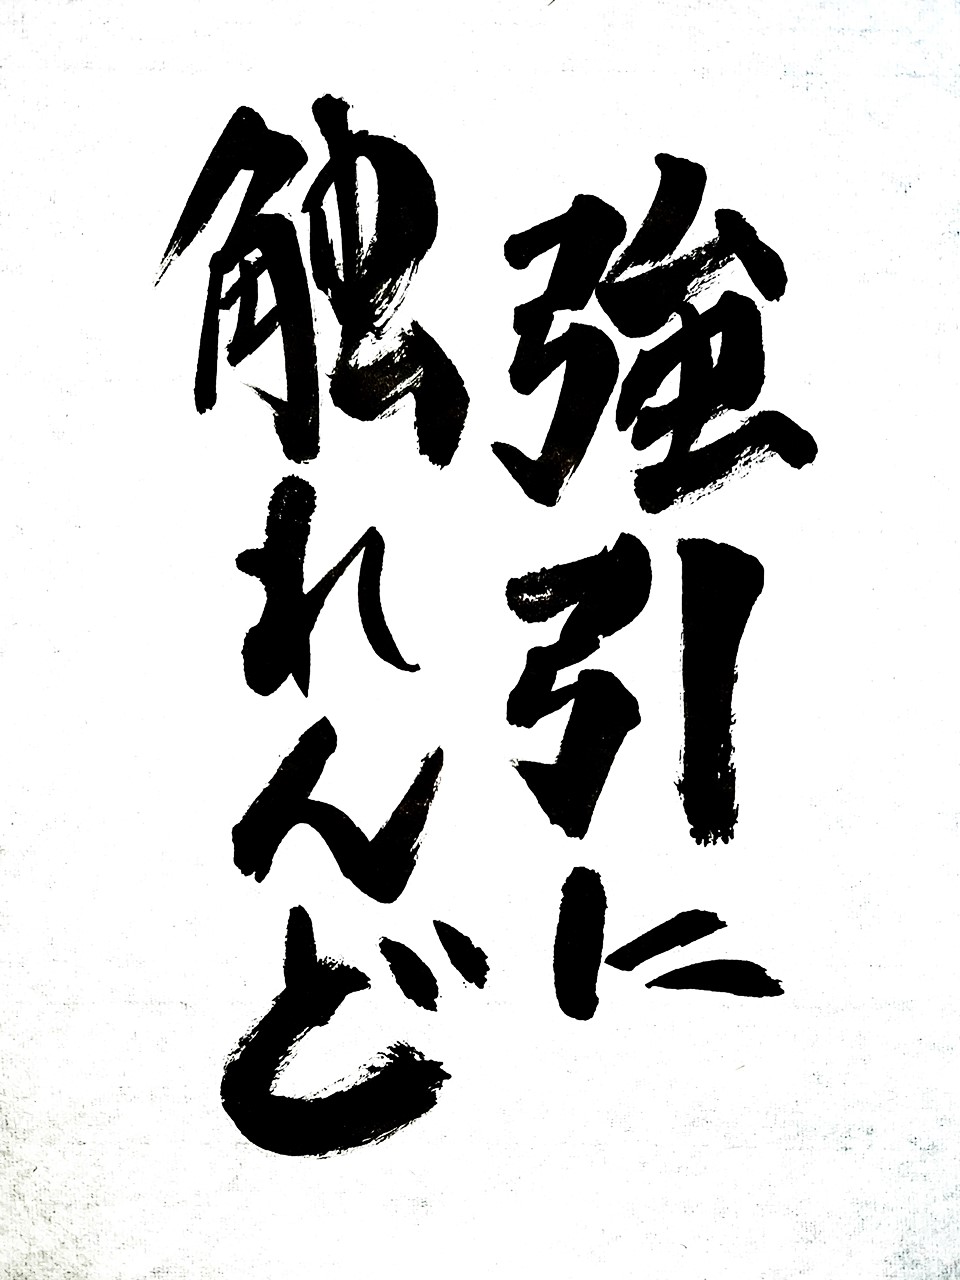 強引に
触れんど